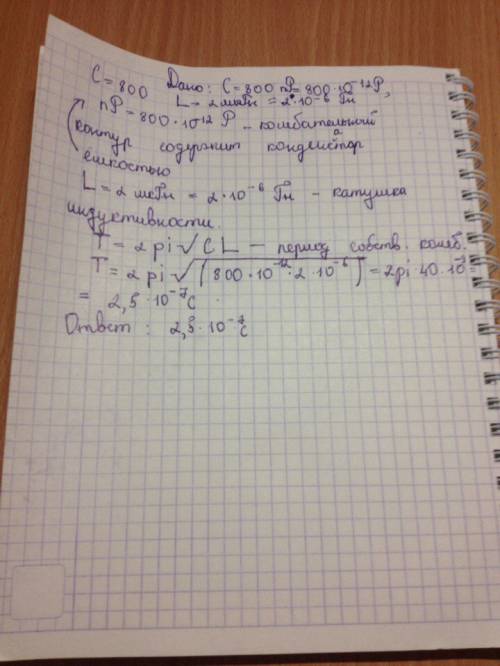 C = 800 Дано: C = 800 пР = 800 · 10⁻¹² Р,
L - 2 мкГн = 2 · 10⁻⁶ Гн
пР - 800 · 10⁻¹² Р - колебательный
контур содержит конденсатор
ёмкостью
L = 2 мкГн = 2 · 10⁻⁶ Гн - катушка
индуктивности.
T = 2 pi √CL - период собств. колеб.
T = 2 pi √(800 · 10⁻¹² · 2 · 10⁻⁶) = 2pi · 40 · 10⁻⁹
= 2,5 · 10⁻⁷ с
Ответ : 2,5 · 10⁻⁷ с